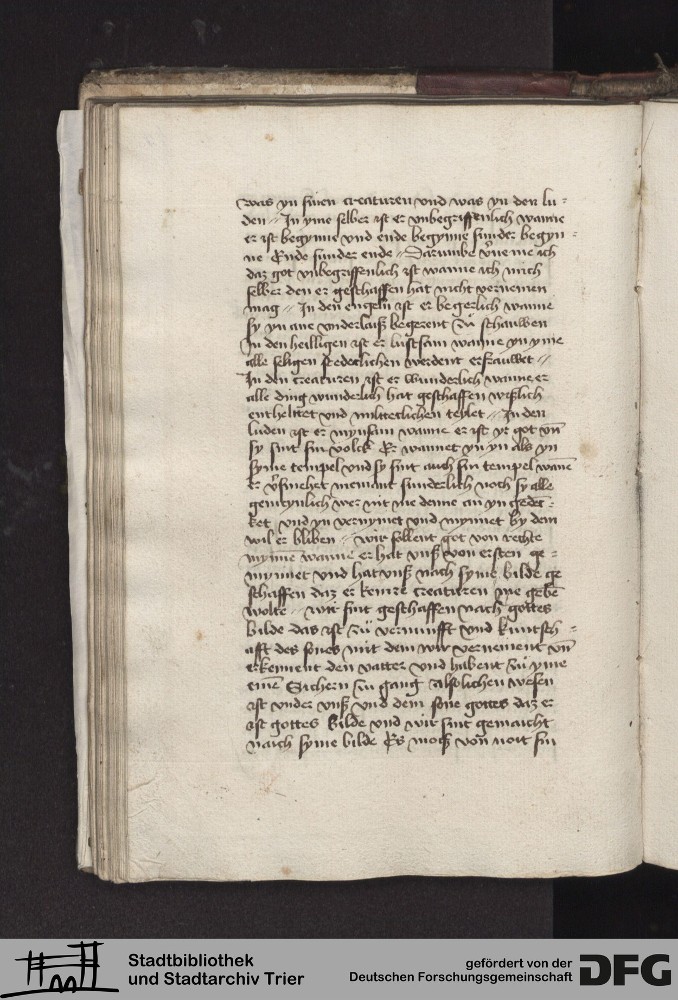 was yn sinen creaturen vnd was yn den lu=
den // In yme selber ist er vnbegriffenlich wanne
er ist begynne vnd ende begynne sunder begyn=
ne Ende sunder ende // Darumbe v̄neme ich
daz got vnbegriffenlich ist wanne ich mich
selber den er geschaffen hat nicht vernemen
mag // In den engeln ist er begerlich wanne
sy yn ane vnderlaiß begerent zü schauwen
In den heilligen ist er lustsam wanne yn yme
alle seligen stedeclichen werdent erfrauwet //
In den creaturen ist er wunderlich wanne er
alle ding wunderlich hat geschaffen wißlich
entheltet vnd milteclichen teylet // In den
luden ist er mynsam wanne er ist yr got vn̄
sy sint sin volck Er wannet yn yn als yn
syme tempel vnd sy sint auch sin tempel wan̄e
er v̄smehet niemant sunderlich noch sy alle
gemeynlich wer nit me denne an yn gedec=
ket vnd yn vernymet vnd mynnet by dem
wil er bliben // wir sollent got von rechte
mynne wanne er hat vnß von ersten ge=
mynnet vnd hat vnß nach syme bilde ge
schaffen daz er keinre creaturen me gebē
wolte // wir sint geschaffen nach gottes
bilde das ist zü vernunfft vnd kuntsch=
afft des sones mit dem wir vernement vn̄
erkennent den vatter vnd habent zü yme
einē Sichern zu gang Alsolichen wesen
ist vnder vnß vnd dem sone gottes daz er
ist gottes bilde vnd wir sint gemaicht
naich syme bilde Es moiß von noit sin
Stadtbibliothek
und Stadtarchiv Trier
gefördert von der
Deutschen Forschungsgemeinschaft
DFG